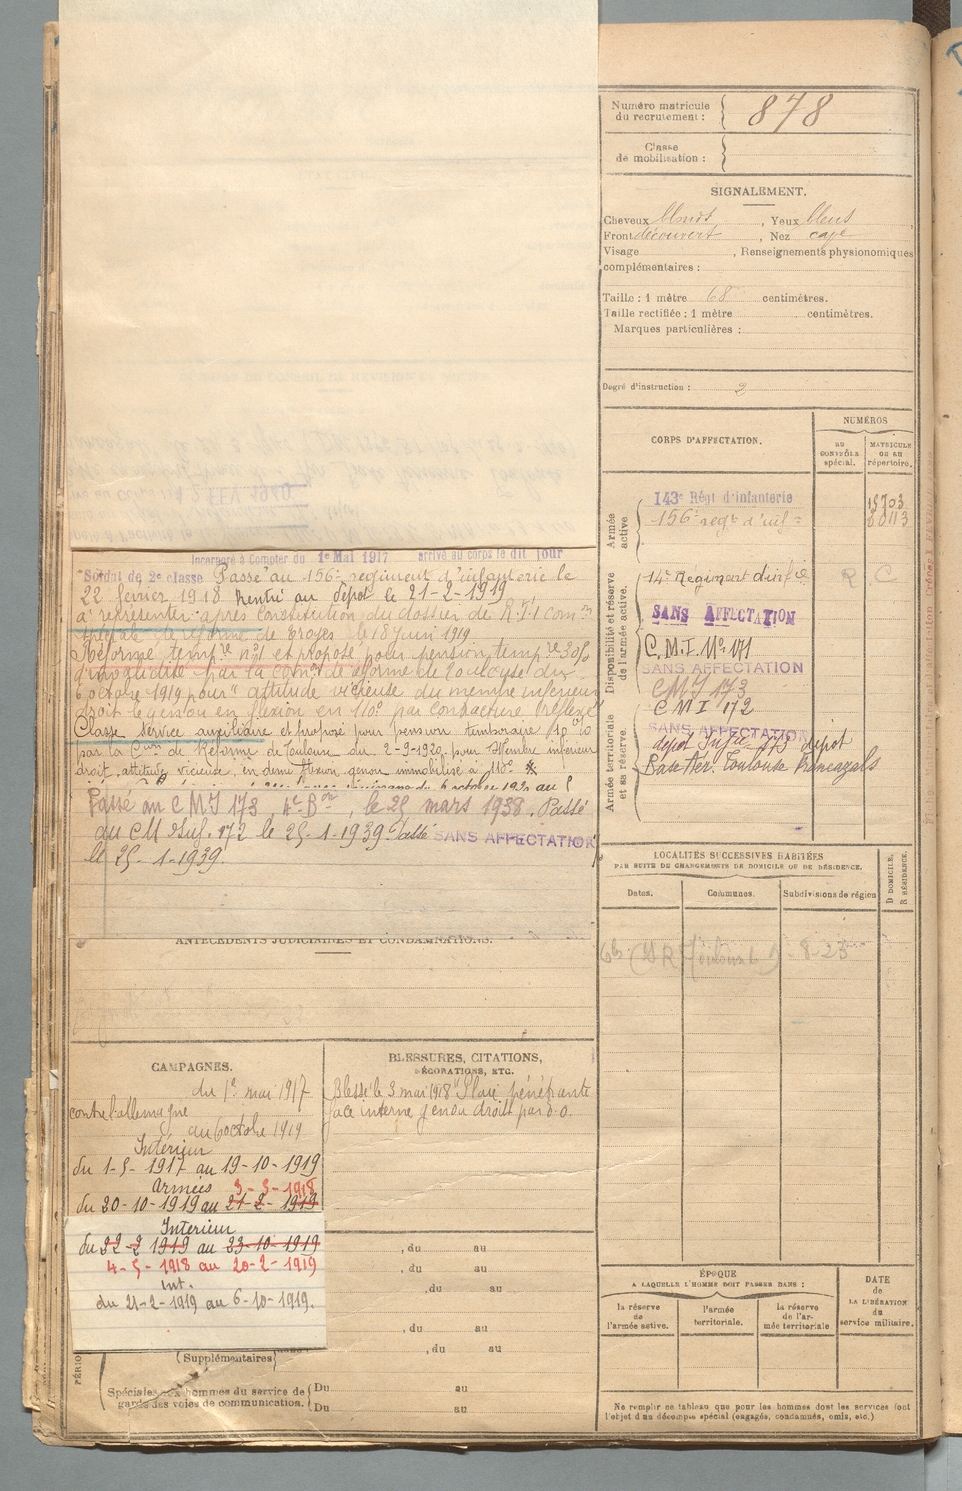 Numéro matricule
du recrutement :
878
Classe
de mobilisation :
SIGNALEMENT.
Cheveux blonds, Yeux bleus
Front découvert, Nez cave
Visage, Renseignements physionomiques
complémentaires :
Taille : 1 mètre 68 centimètres.
Taille rectifiée : 1 mètre centimètres.
Marques particulières :
Degré d'instruction : 2
CORPS D'AFFECTATION.
NUMÉROS
AU
CONTRÔLE
spécial.
MATRICULE
OU AU
RÉPERTOIRE.
Armée
active
143e Régt d'infanterie
156e regt d'inf
Disponibilité et réserve
de l'armée active.
14e Régiment d'inf ie R C
SANS AFFECTATION
C.M.I. No 171
SANS AFFECTATION
CMI 173
CMI 172
Armée territoriale
et sa réserve.
SANS AFFECTATION
dépôt Infie 173 dépôt
Base Aer. Toulouse Francazals
Incorporé à Compter du 1er Mai 1917 arrivé au corps le dit jour
Soldat de 2e classe Passé au 156e régiment d'infanterie le
22 février 1918 Rentré au dépôt le 21-2-1919
à représenter après constitution du dossier de R.T.1 com on
spéciale de réforme de Troyes le 18 juin 1919
Réformé tempre no1 et proposé pour pension tempre 30%
d'invalidité par la comon de réforme de Toulouse du
6 octobre 1919 pour "attitude vicieuse du membre inférieur
droit le genou en flexion en 110° par contracture réflexe
Classe service auxiliaire et proposé pour pension temporaire
par la Con de Réforme de Toulouse du 2-9-1920. pour Membre inférieur
droit, attitude vicieuse, en demi flexion, genou immobilisé à 110°
Passé au CMI 173, 4e Bon, le 25 mars 1938. Passé
au CM Inf. 172 le 25-1-1939. Passé SANS AFFECTATION
le 25-1-1939.
LOCALITÉS SUCCESSIVES HABITÉES
PAR SUITE DE CHANGEMENTS DE DOMICILE OU DE RÉSIDENCE.
Dates.
Communes.
Subdivisions de région
D DOMICILE.
R RÉSIDENCE.
ANTÉCÉDENTS JUDICIAIRES ET CONDAMNATIONS.
CAMPAGNES.
du 1er mai 1917
contre l'allemagne
au 6 octobre 1919
Intérieur
du 1-5-1917 au 19-10-1919
Armées 3-5-1918
du 20-10-1919 au 21-2-1919
Interieur
du 22-2 1919 au 23-10-1919
4-5-1918 au 20-2-1919
int.
du 21-2-1919 au 6-10-1919.
BLESSURES, CITATIONS,
DÉCORATIONS, ETC.
Blessé le 3 mai 1918 "Plaie pénétrante
face interne genou droit par é.o.
, du au
, du au
, du au
, du au
, du au
Supplémentaires
Spéciales aux hommes du service de
garde des voies de communication.
Du au
Du au
ÉPOQUE
A LAQUELLE L'HOMME DOIT PASSER DANS :
la réserve
de
l'armée active.
l'armée
territoriale.
la réserve
de l'ar-
mée territoriale
DATE
de
LA LIBÉRATION
du
service militaire.
Ne remplir ce tableau que pour les hommes dont les services font
l'objet d'un décompte spécial (engagés, condamnés, omis, etc.)